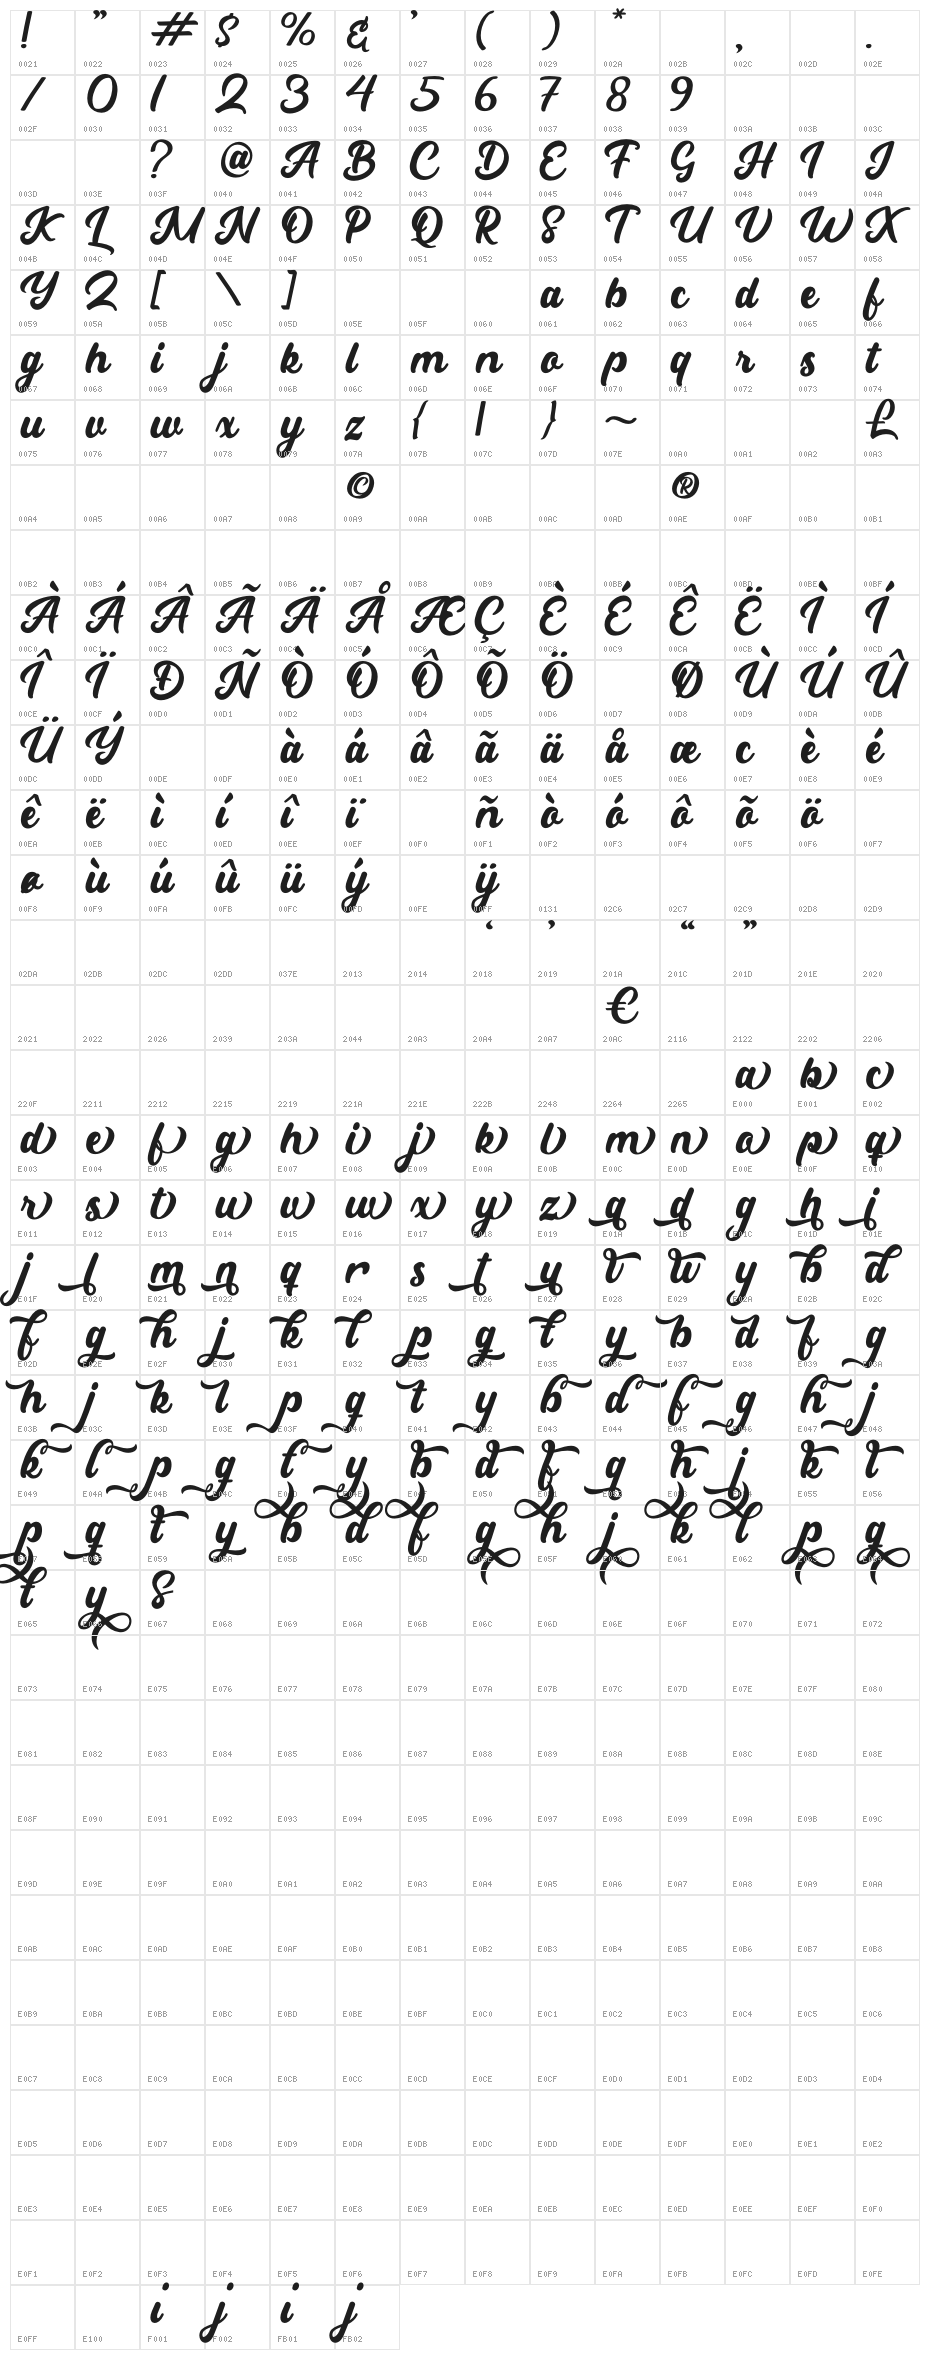 ! " # $ % & ' ( ) * , .
0021 0022 0023 0024 0025 0026 0027 0028 0029 002A 002B 002C 002D 002E
/ 0 1 2 3 4 5 6 7 8 9
002F 0030 0031 0032 0033 0034 0035 0036 0037 0038 0039 003A 003B 003C
? @ A B C D E F G H I J
003D 003E 003F 0040 0041 0042 0043 0044 0045 0046 0047 0048 0049 004A
K L M N O P Q R S T U V W X
004B 004C 004D 004E 004F 0050 0051 0052 0053 0054 0055 0056 0057 0058
Y Z [ \ ] a b c d e f
0059 005A 005B 005C 005D 005E 005F 0060 0061 0062 0063 0064 0065 0066
g h i j k l m n o p q r s t
0067 0068 0069 006A 006B 006C 006D 006E 006F 0070 0071 0072 0073 0074
u v w x y z { | } ~ £
0075 0076 0077 0078 0079 007A 007B 007C 007D 007E 00A0 00A1 00A2 00A3
© ®
00A4 00A5 00A6 00A7 00A8 00A9 00AA 00AB 00AC 00AD 00AE 00AF 00B0 00B1
00B2 00B3 00B4 00B5 00B6 00B7 00B8 00B9 00BA 00BB 00BC 00BD 00BE 00BF
À Á Â Ã Ä Å Æ Ç È É Ê Ë Ì Í
00C0 00C1 00C2 00C3 00C4 00C5 00C6 00C7 00C8 00C9 00CA 00CB 00CC 00CD
Î Ï Ð Ñ Ò Ó Ô Õ Ö Ø Ù Ú Û
00CE 00CF 00D0 00D1 00D2 00D3 00D4 00D5 00D6 00D7 00D8 00D9 00DA 00DB
Ü Ý à á â ã ä å æ c è é
00DC 00DD 00DE 00DF 00E0 00E1 00E2 00E3 00E4 00E5 00E6 00E7 00E8 00E9
ê ë ì í î ï ñ ò ó ô õ ö
00EA 00EB 00EC 00ED 00EE 00EF 00F0 00F1 00F2 00F3 00F4 00F5 00F6 00F7
ø ù ú û ü ý ÿ
00F8 00F9 00FA 00FB 00FC 00FD 00FE 00FF 0131 02C6 02C7 02C9 02D8 02D9
‘ ’ “ ”
02DA 02DB 02DC 02DD 037E 2013 2014 2018 2019 201A 201C 201D 201E 2020
€
2021 2022 2026 2039 203A 2044 20A3 20A4 20A7 20AC 2116 2122 2202 2206
a b c
220F 2211 2212 2215 2219 221A 221E 222B 2248 2264 2265 E000 E001 E002
d e f g h i j k l m n o p q
E003 E004 E005 E006 E007 E008 E009 E00A E00B E00C E00D E00E E00F E010
r s t u v w x y z a d g h i
E011 E012 E013 E014 E015 E016 E017 E018 E019 E01A E01B E01C E01D E01E
j l m n q r s t u v w y b d
E01F E020 E021 E022 E023 E024 E025 E026 E027 E028 E029 E02A E02B E02C
f g h j k l p q t y b d f g
E02D E02E E02F E030 E031 E032 E033 E034 E035 E036 E037 E038 E039 E03A
h j k l p q t y b d f g h j
E03B E03C E03D E03E E03F E040 E041 E042 E043 E044 E045 E046 E047 E048
k l p q t y b d f g h j k l
E049 E04A E04B E04C E04D E04E E04F E050 E051 E052 E053 E054 E055 E056
p q t y b d f g h j k l p q
E057 E058 E059 E05A E05B E05C E05D E05E E05F E060 E061 E062 E063 E064
t y s
E065 E066 E067 E068 E069 E06A E06B E06C E06D E06E E06F E070 E071 E072
E073 E074 E075 E076 E077 E078 E079 E07A E07B E07C E07D E07E E07F E080
E081 E082 E083 E084 E085 E086 E087 E088 E089 E08A E08B E08C E08D E08E
E08F E090 E091 E092 E093 E094 E095 E096 E097 E098 E099 E09A E09B E09C
E09D E09E E09F E0A0 E0A1 E0A2 E0A3 E0A4 E0A5 E0A6 E0A7 E0A8 E0A9 E0AA
E0AB E0AC E0AD E0AE E0AF E0B0 E0B1 E0B2 E0B3 E0B4 E0B5 E0B6 E0B7 E0B8
E0B9 E0BA E0BB E0BC E0BD E0BE E0BF E0C0 E0C1 E0C2 E0C3 E0C4 E0C5 E0C6
E0C7 E0C8 E0C9 E0CA E0CB E0CC E0CD E0CE E0CF E0D0 E0D1 E0D2 E0D3 E0D4
E0D5 E0D6 E0D7 E0D8 E0D9 E0DA E0DB E0DC E0DD E0DE E0DF E0E0 E0E1 E0E2
E0E3 E0E4 E0E5 E0E6 E0E7 E0E8 E0E9 E0EA E0EB E0EC E0ED E0EE E0EF E0F0
E0F1 E0F2 E0F3 E0F4 E0F5 E0F6 E0F7 E0F8 E0F9 E0FA E0FB E0FC E0FD E0FE
i j i j
E0FF E100 F001 F002 FB01 FB02